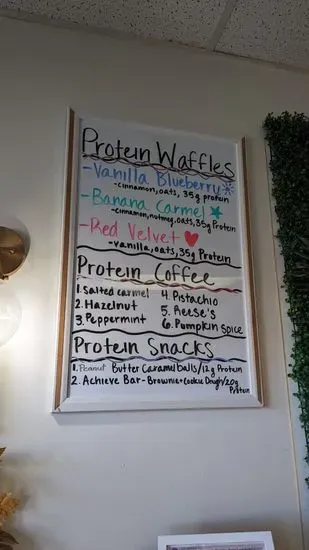 Protein Waffles
-Vanilla Blueberry
-cinnamon, oats, 35g protein
-Banana Carmel
-cinnamon, nutmeg, oats, 35g Protein
-Red Velvet
-vanilla, oats, 35g Protein
Protein Coffee
1. Salted carmel
2. Hazelnut
3. Peppermint
4. Pistachio
5. Reese's
6. Pumpkin Spice
Protein Snacks
1. Peanut Butter Caramel balls/12g Protein
2. Achieve Bar - Brownie + Cookie Dough/20g
Protein